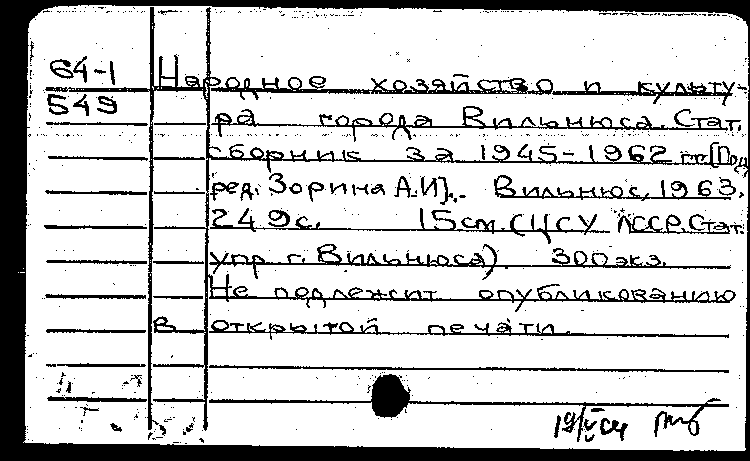 64-1 Народное хозяйство и культу-
549 ра города Вильнюса. Стат.
сборник за 1945-1962 гг. [Под
ред. Зорина А.И]. Вильнюс, 1963.
249с. 15см. (ЦСУ ЛССР. Стат.
упр г. Вильнюса) 300 экз.
Не подлежит опубликованию
в открытой печати.